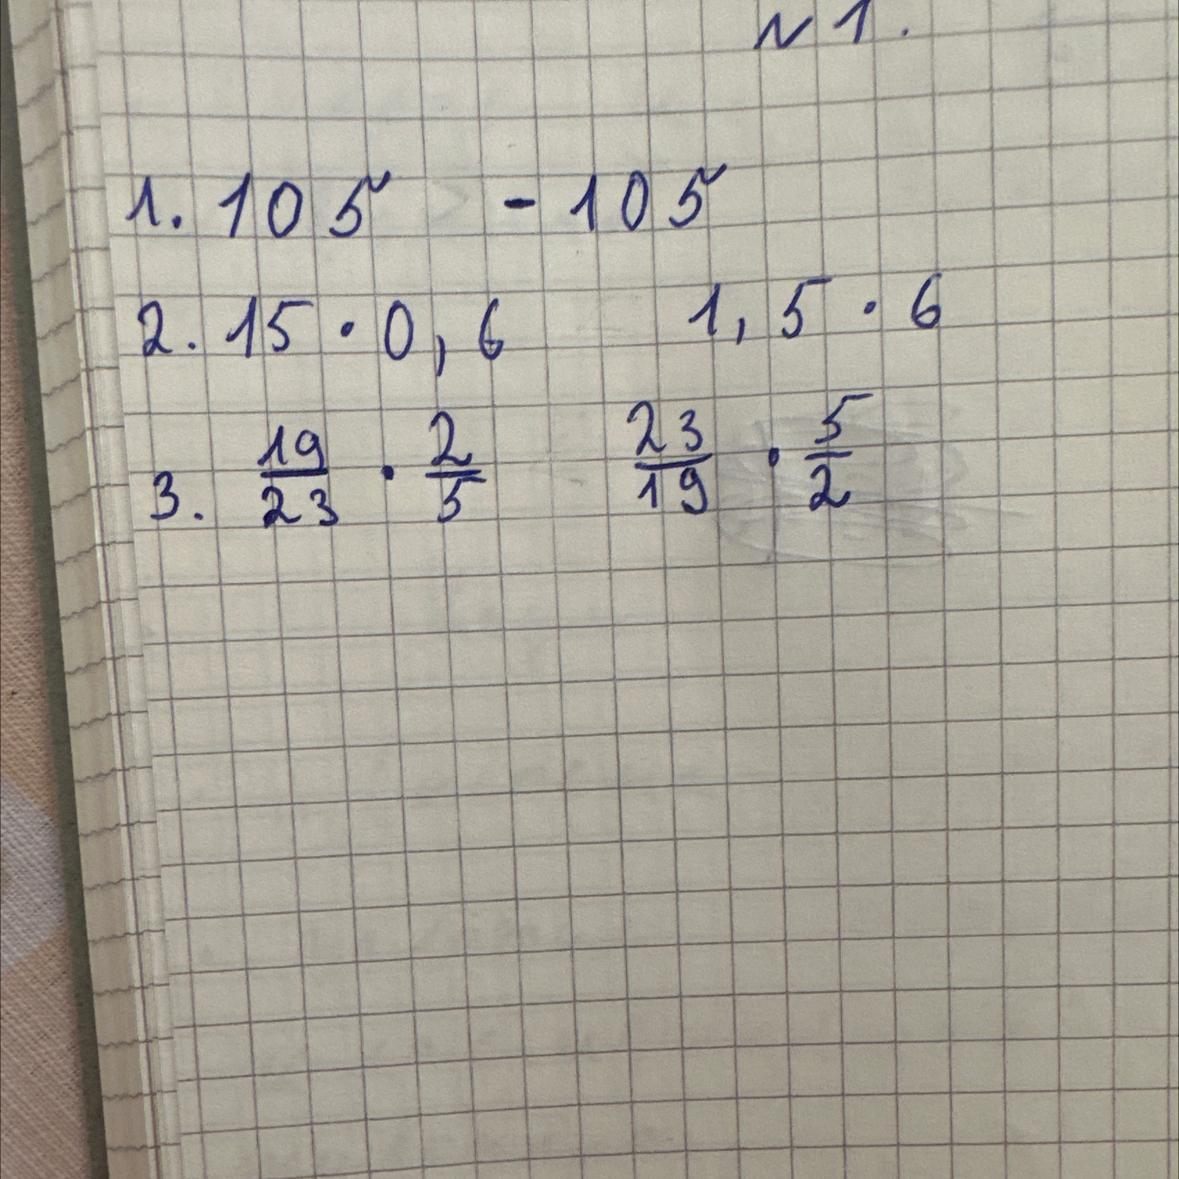 N 1.
1. 105 - 105
2. 15 · 0,6 1,5 · 6
3. 19/23 · 2/5 23/19 · 5/2